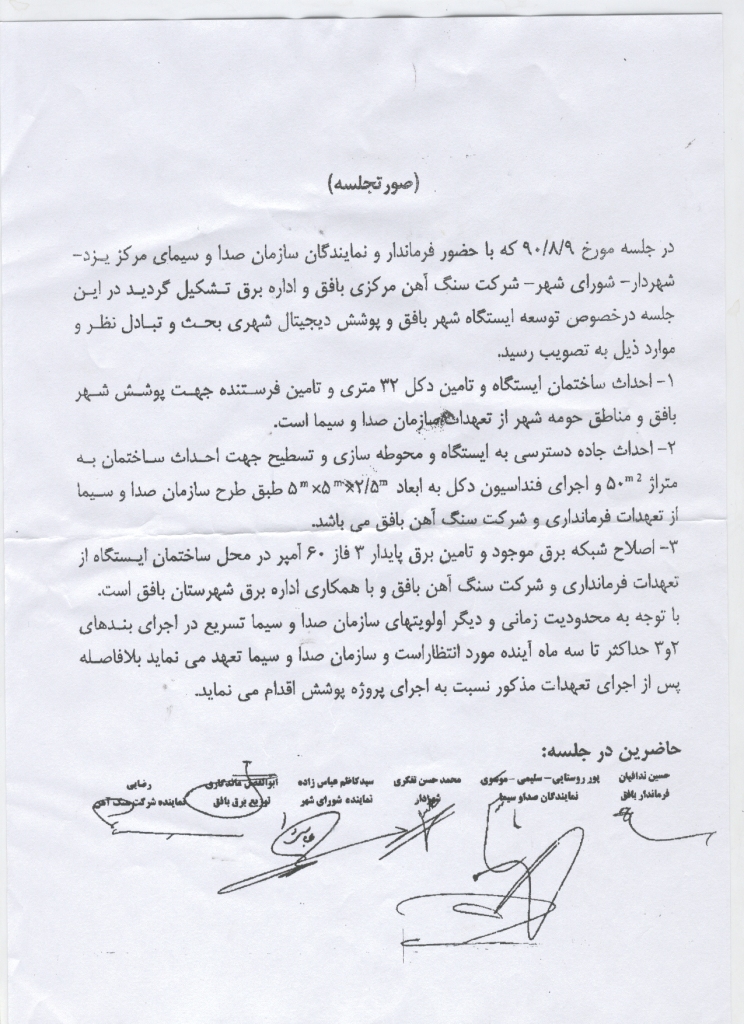 (صورتجلسه)
در جلسه مورخ ۹۰/۸/۹ که با حضور فرماندار و نمایندگان سازمان صدا و سیمای مرکز یزد-
شهردار- شورای شهر- شرکت سنگ آهن مرکزی بافق و اداره برق تشکیل گردید در این
جلسه درخصوص توسعه ایستگاه شهر بافق و پوشش دیجیتال شهری بحث و تبادل نظر و
موارد ذیل به تصویب رسید.
۱- احداث ساختمان ایستگاه و تامین دکل ۳۲ متری و تامین فرستنده جهت پوشش شهر
بافق و مناطق حومه شهر از تعهدات سازمان صدا و سیما است.
۲- احداث جاده دسترسی به ایستگاه و محوطه سازی و تسطیح جهت احداث ساختمان به
متراژ ۵۰m2 و اجرای فنداسیون دکل به ابعاد ۵m×۵m×۲/۵m طبق طرح سازمان صدا و سیما
از تعهدات فرمانداری و شرکت سنگ آهن بافق می باشد.
۳- اصلاح شبکه برق موجود و تامین برق پایدار ۳ فاز ۶۰ آمپر در محل ساختمان ایستگاه از
تعهدات فرمانداری و شرکت سنگ آهن بافق و با همکاری اداره برق شهرستان بافق است.
با توجه به محدودیت زمانی و دیگر اولویتهای سازمان صدا و سیما تسریع در اجرای بندهای
۲و۳ حداکثر تا سه ماه آینده مورد انتظاراست و سازمان صدا و سیما تعهد می نماید بلافاصله
پس از اجرای تعهدات مذکور نسبت به اجرای پروژه پوشش اقدام می نماید.
حاضرین در جلسه:
حسین ندافیان پور روستایی- سلیمی- موسوی محمد حسن تفکری سیدکاظم عباس زاده ابوالفضل ماندگاری رضایی
فرماندار بافق نمایندگان صداو سیما شهردار نماینده شورای شهر توزیع برق بافق نماینده شرکت سنگ آهن